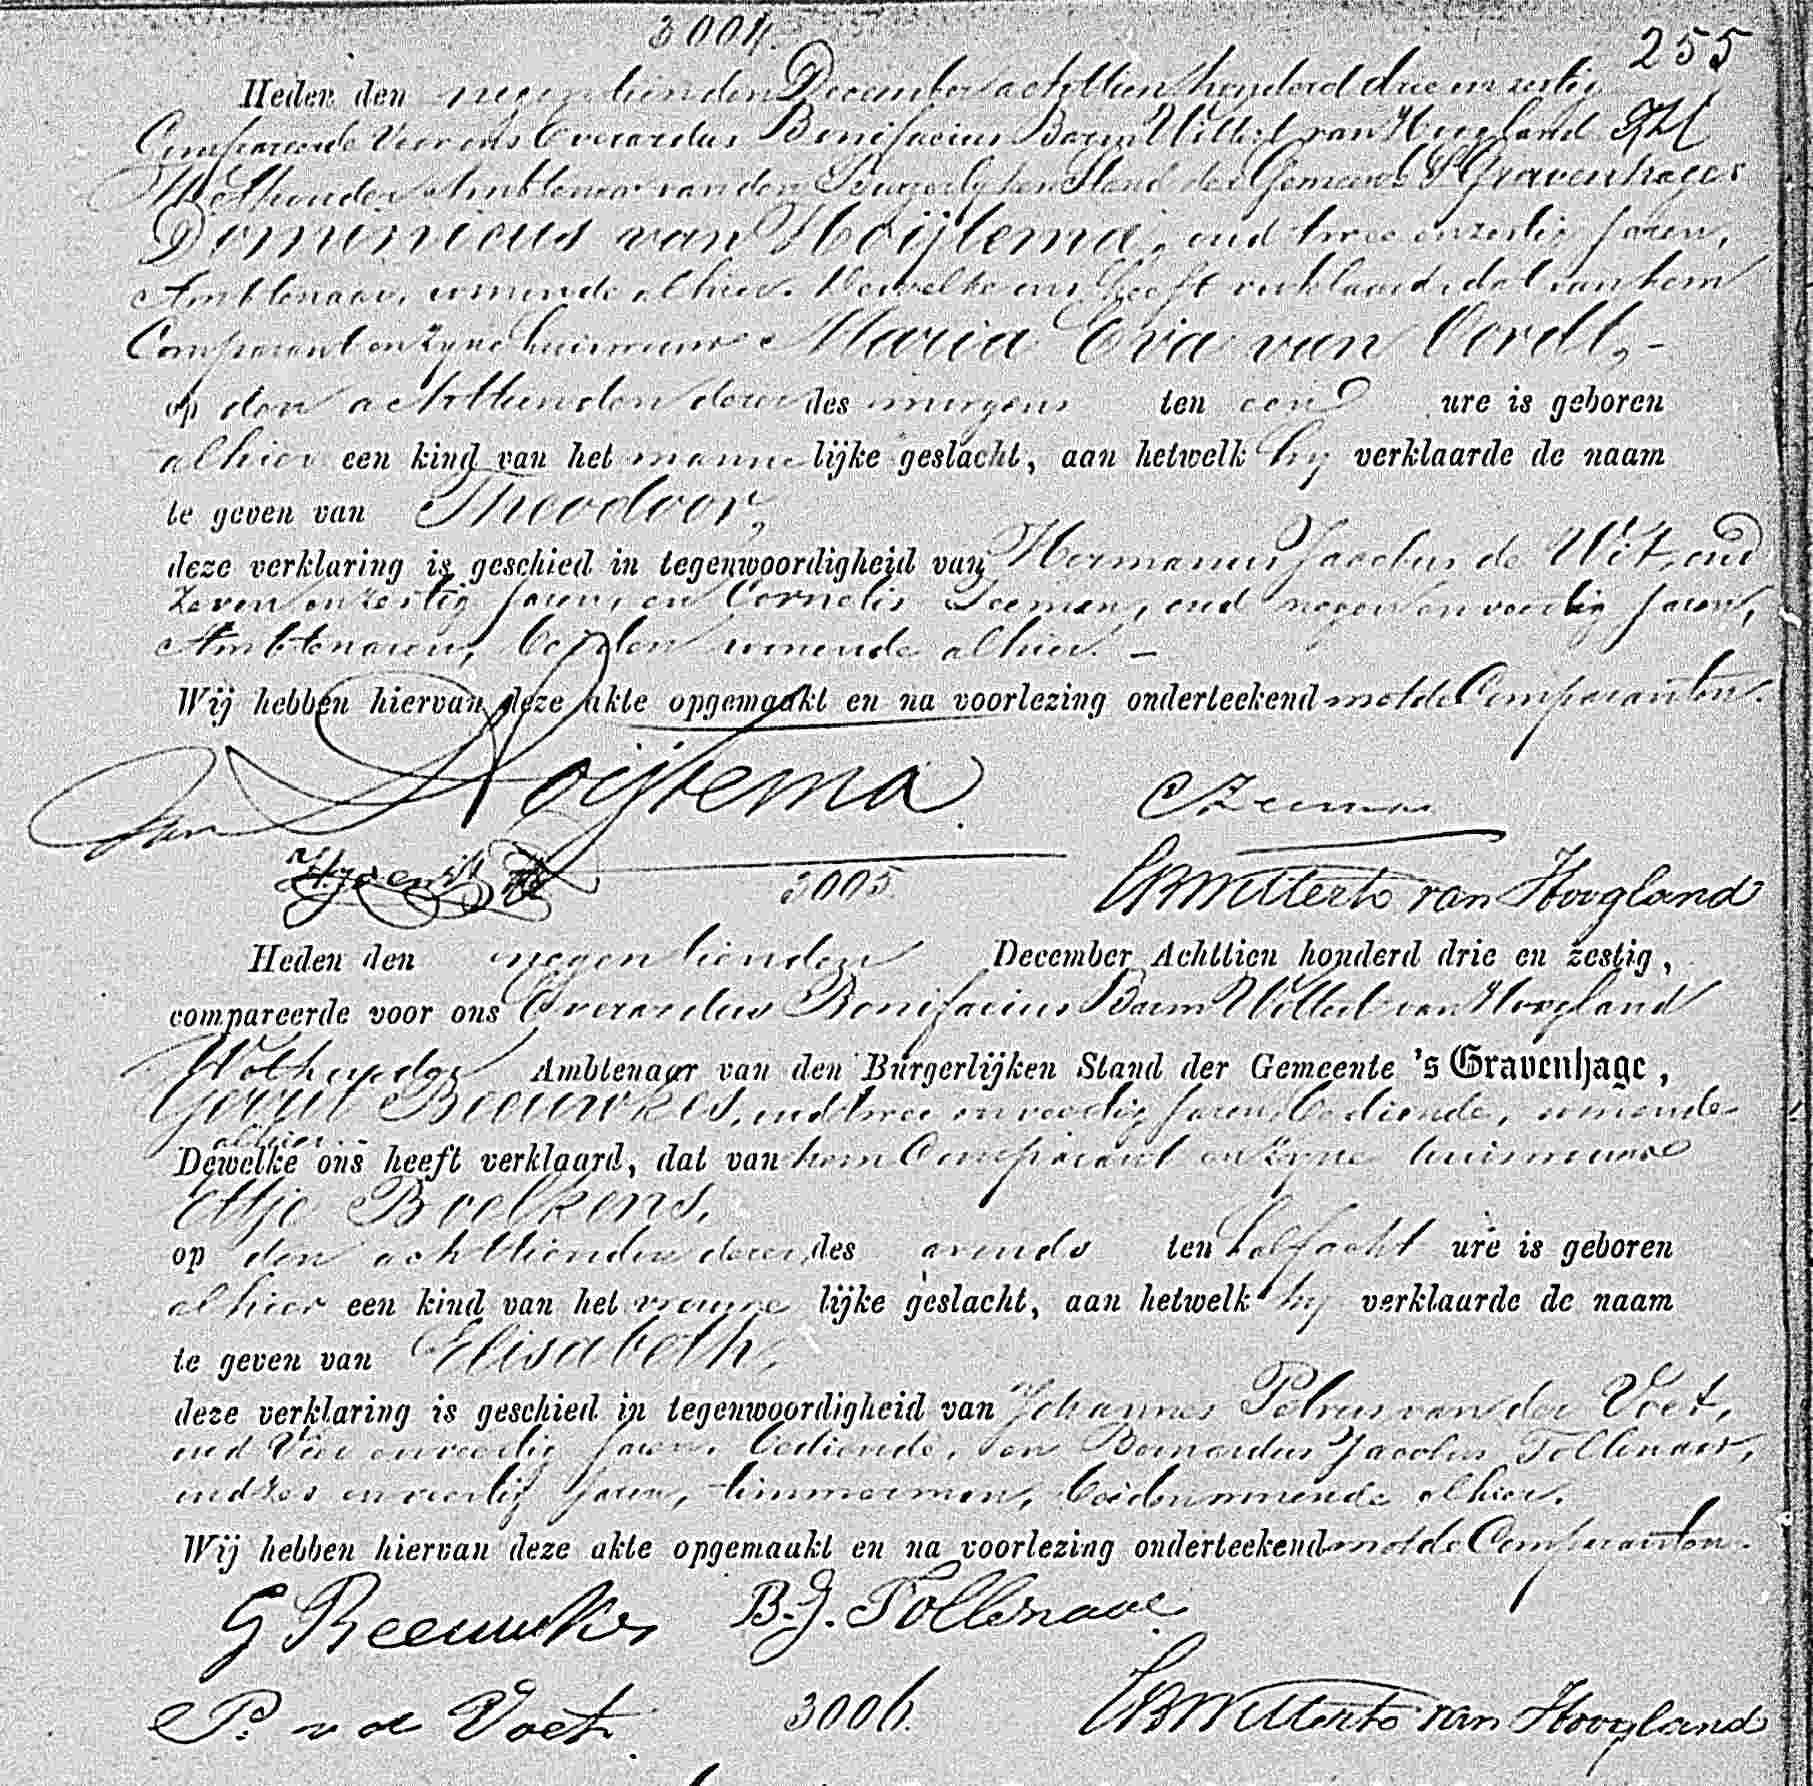 3004.
255
Heden den negentienden December achttien honderd drie en zestig
Compareerde voor ons Everardus Bonifacius Baron Wittert van Hoogland
Wethouder Ambtenaar van den Burgerlijken Stand der Gemeente 's Gravenhage
Dominicus van Hoijtema, oud twee en zestig jaren,
Ambtenaar, wonende alhier. Dewelke ons heeft verklaard, dat van hem
Comparant en zijne huisvrouw Maria Eva van Oordt,
op den achttienden dezer des morgens ten een ure is geboren
alhier een kind van het manne lijke geslacht, aan hetwelk hij verklaarde de naam
te geven van Theodoor,
deze verklaring is geschied in tegenwoordigheid van Hermanus Jacobus de Wit, oud
zeven en zestig jaren, en Cornelis Zeeman, oud negen en veertig jaren,
Ambtenaren, beiden wonende alhier. —
Wij hebben hiervan deze akte opgemaakt en na voorlezing onderteekend met de Comparanten.
van Hoijtema.
C Zeeman
3005.
EBWitterts van Hoogland
Heden den negentienden December Achttien honderd drie en zestig,
compareerde voor ons Everardus Bonifacius Baron Wittert van Hoogland
Wethouder Ambtenaar van den Burgerlijken Stand der Gemeente 's Gravenhage,
Gerrit Beeuwkes, oud twee en veertig jaren, bediende, wonende
alhier.
Dewelke ons heeft verklaard, dat van hem Comparant en zijne huisvrouw
Eltje Boelkens,
op den achttienden dezer, des avonds ten half acht ure is geboren
alhier een kind van het vrouwe lijke geslacht, aan hetwelk hij verklaarde de naam
te geven van Elisabeth,
deze verklaring is geschied in tegenwoordigheid van Johannes Petrus van der Voet,
oud vier en veertig jaren, bediende, en Bernardus Jacobus Tollenaar,
oud zes en veertig jaren, timmerman, beiden wonende alhier.
Wij hebben hiervan deze akte opgemaakt en na voorlezing onderteekend met de Comparanten.
G Beeuwkes
B.J. Tollenaar
P. v d Voet.
3006.
EBWitterts van Hoogland